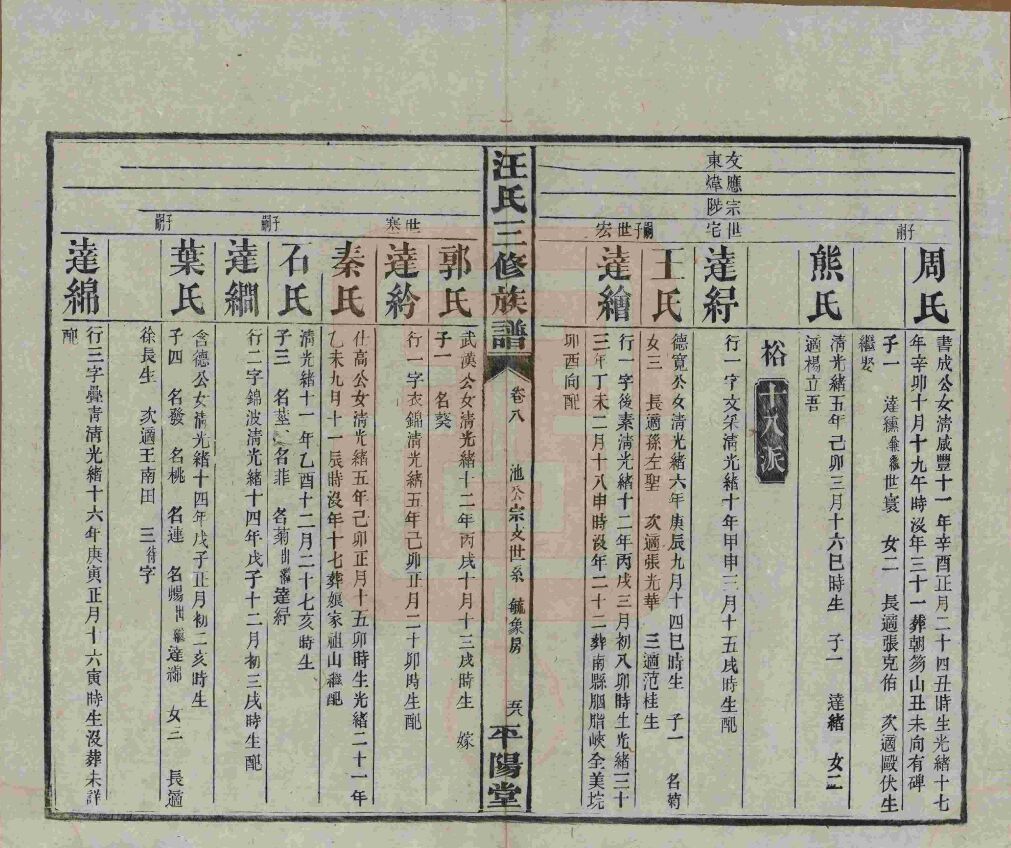 子嗣
周氏
書成公女清咸豐十一年辛酉正月二十四丑時生光緒十七
年辛卯十月十九午時沒年三十一葬朝笏山丑未向有碑
子一 達纁兼繼世寰 女二 長適張克佑 次適毆伏生
繼娶
熊氏
清光緒五年己卯三月十六巳時生 子一 達緒 女二
適楊立吾
裕
十八派
文應宗世
東煒陟宅
達紆
行一字文采清光緒十年甲申三月十五戌時生配
王氏
德寬公女清光緒六年庚辰九月十四巳時生 子一 名菊
女三 長適孫左聖 次適張光華 三適范桂生
世宏嗣子
達繪
行一字後素清光緒十二年丙戌三月初八卯時生光緒三十
三年丁未二月十八申時沒年二十二葬南縣胭脂峽全美垸
卯酉向配
汪氏三修族譜
卷八 池公宗文世系 毓象房
平陽堂
郭氏
武漢公女清光緒十二年丙戌十月十三戌時生 嫁
子一 名葵
世寒
達紟
行一字衣錦清光緒五年己卯正月二十卯時生配
秦氏
仕高公女清光緒五年己卯正月十五卯時生光緒二十一年
乙未九月十一辰時沒年十七葬娘家祖山繼配
石氏
清光緒十一年乙酉十二月二十七亥時生
子三 名莖 名菲 名菊出繼達紆
子嗣
達繝
行二字錦波清光緒十四年戊子十二月初三戌時生配
葉氏
含德公女清光緒十四年戊子正月初二亥時生
子四 名發 名桃 名連 名暢出繼達綿 女三 長適
徐長生 次適王南田 三待字
子嗣
達綿
行三字疊青清光緒十六年庚寅正月十六寅時生沒葬未詳
配